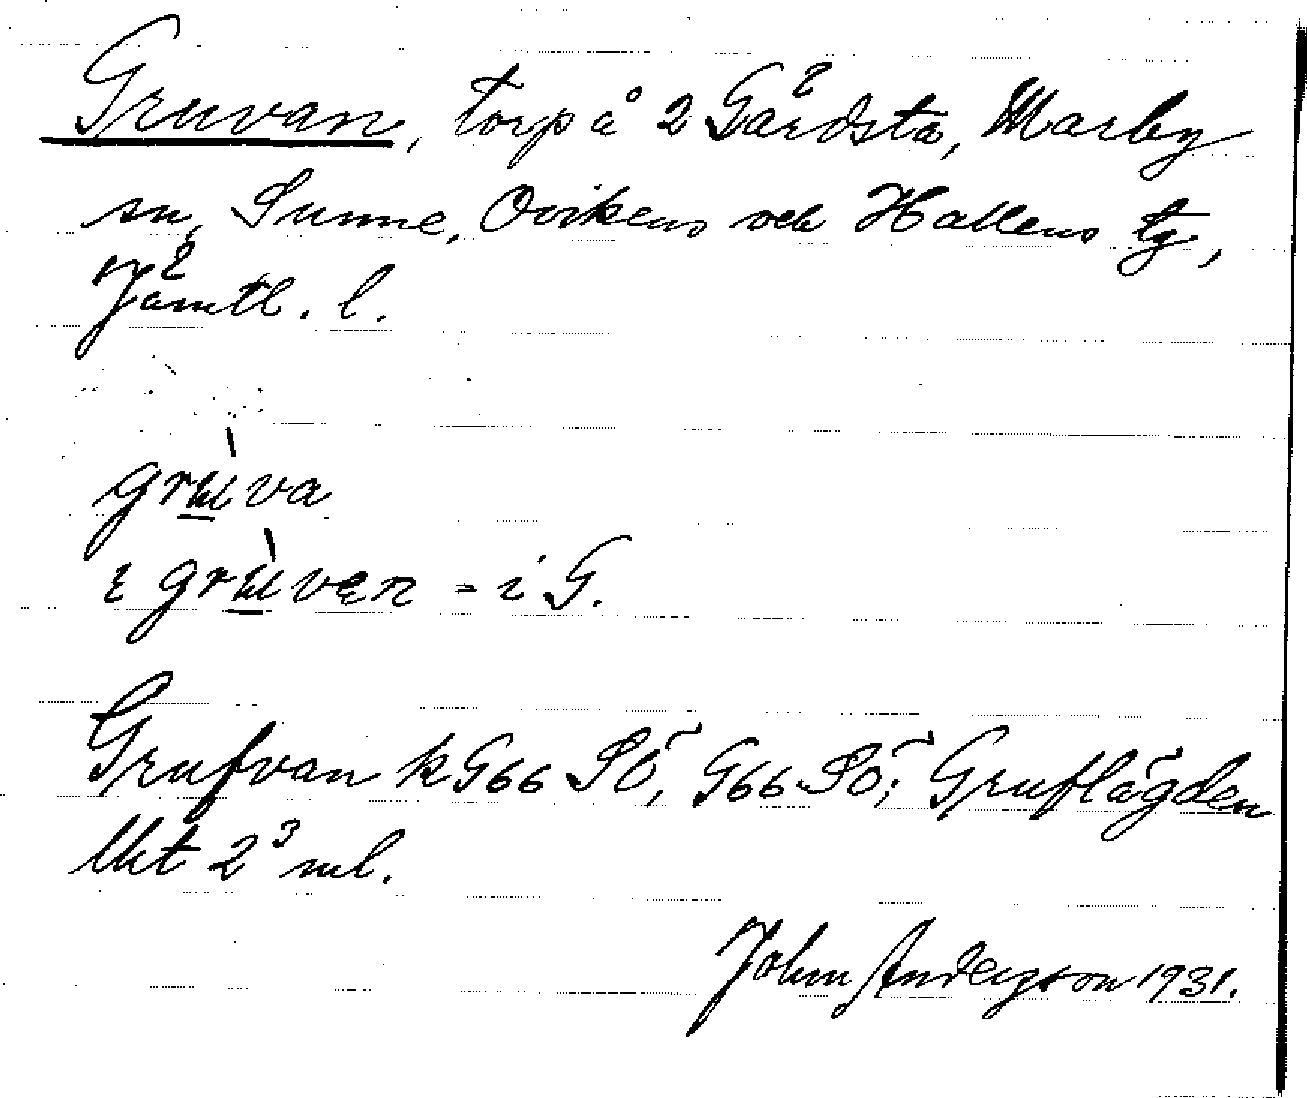 Gruvan, torp å 2 Gärdsta, Marby
sn, Sunne, Ovikens och Hallens tg,
Jämtl. l.
grùva
i grùvan = i G.
Grufvan k G66 SÖ, G66 SÖ; Gruflägden
Ukt 2³ ml.
John Anderson 1931.